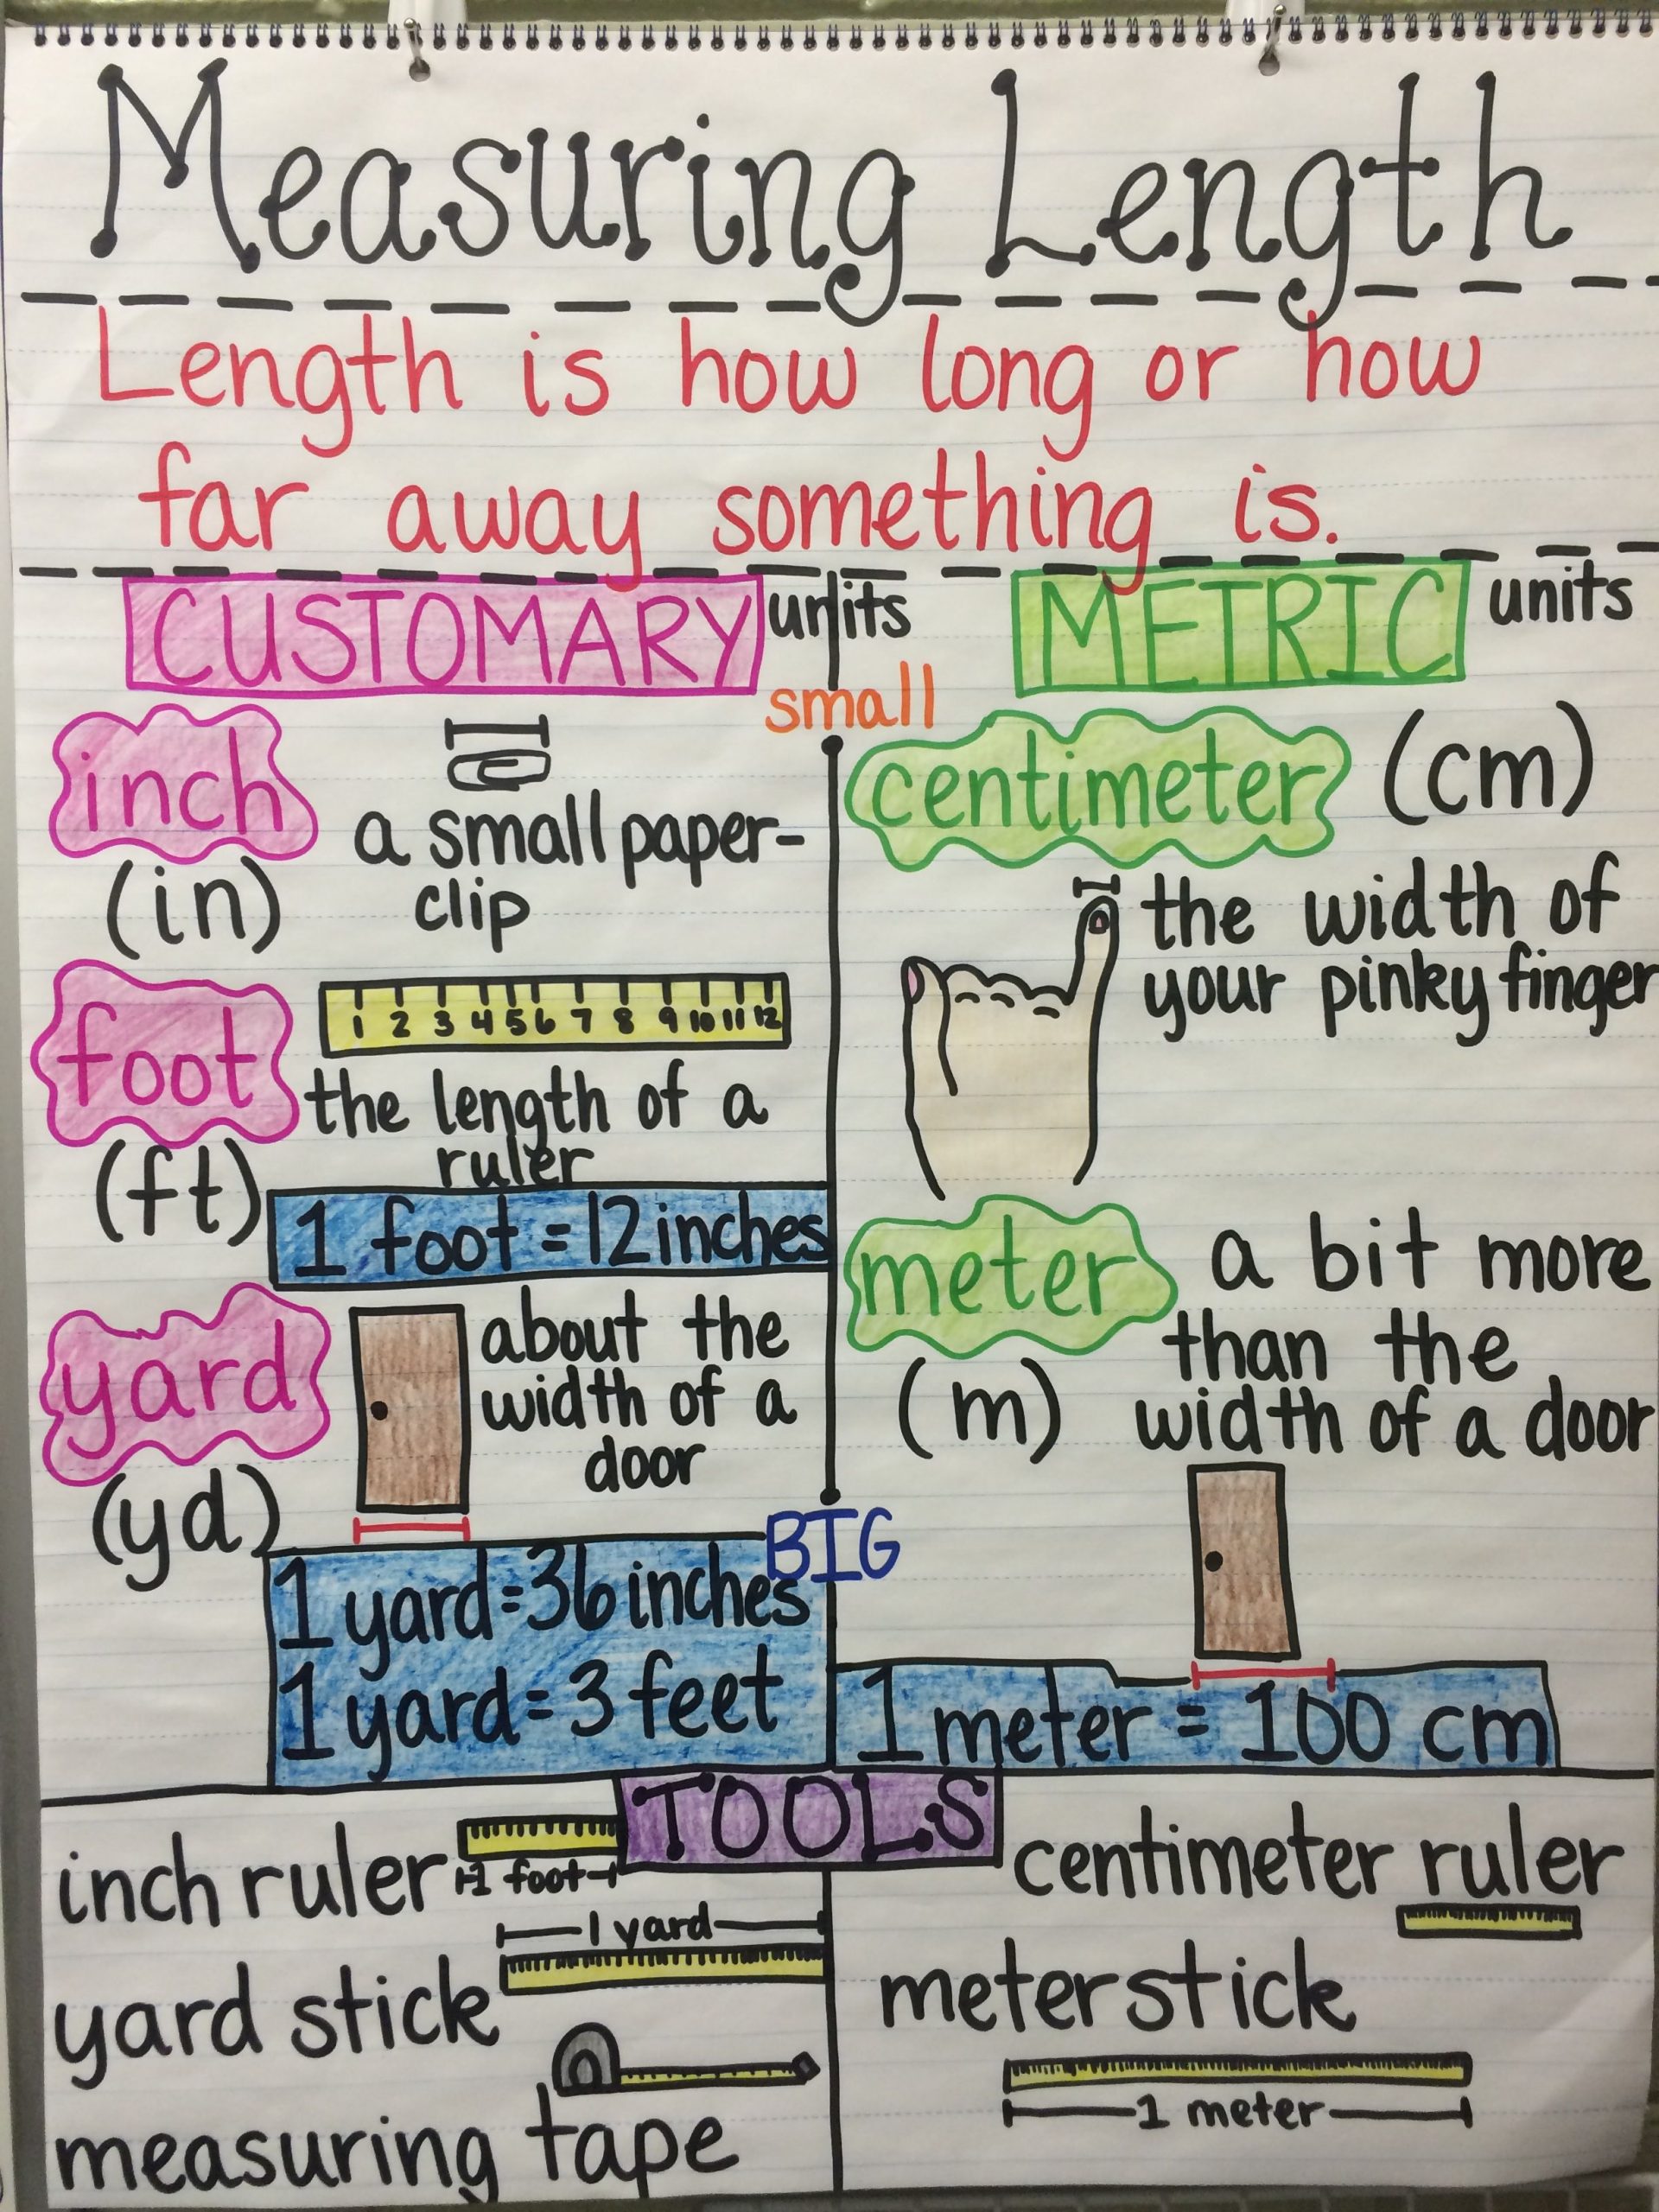 Measuring Length
Length is how long or how
far away something is.
CUSTOMARY units
small
inch
(in)
a small paper-
clip
foot
(ft)
1 2 3 4 5 6 7 8 9 10 11 12
the length of a
ruler
1 foot = 12 inches
yard
(yd)
about the
width of a
door
BIG
1 yard = 36 inches
1 yard = 3 feet
METRIC units
centimeter (cm)
the width of
your pinky finger
meter
(m)
a bit more
than the
width of a door
1 meter = 100 cm
TOOLS
inch ruler
1 foot
1 yard
yard stick
measuring tape
centimeter ruler
meterstick
1 meter